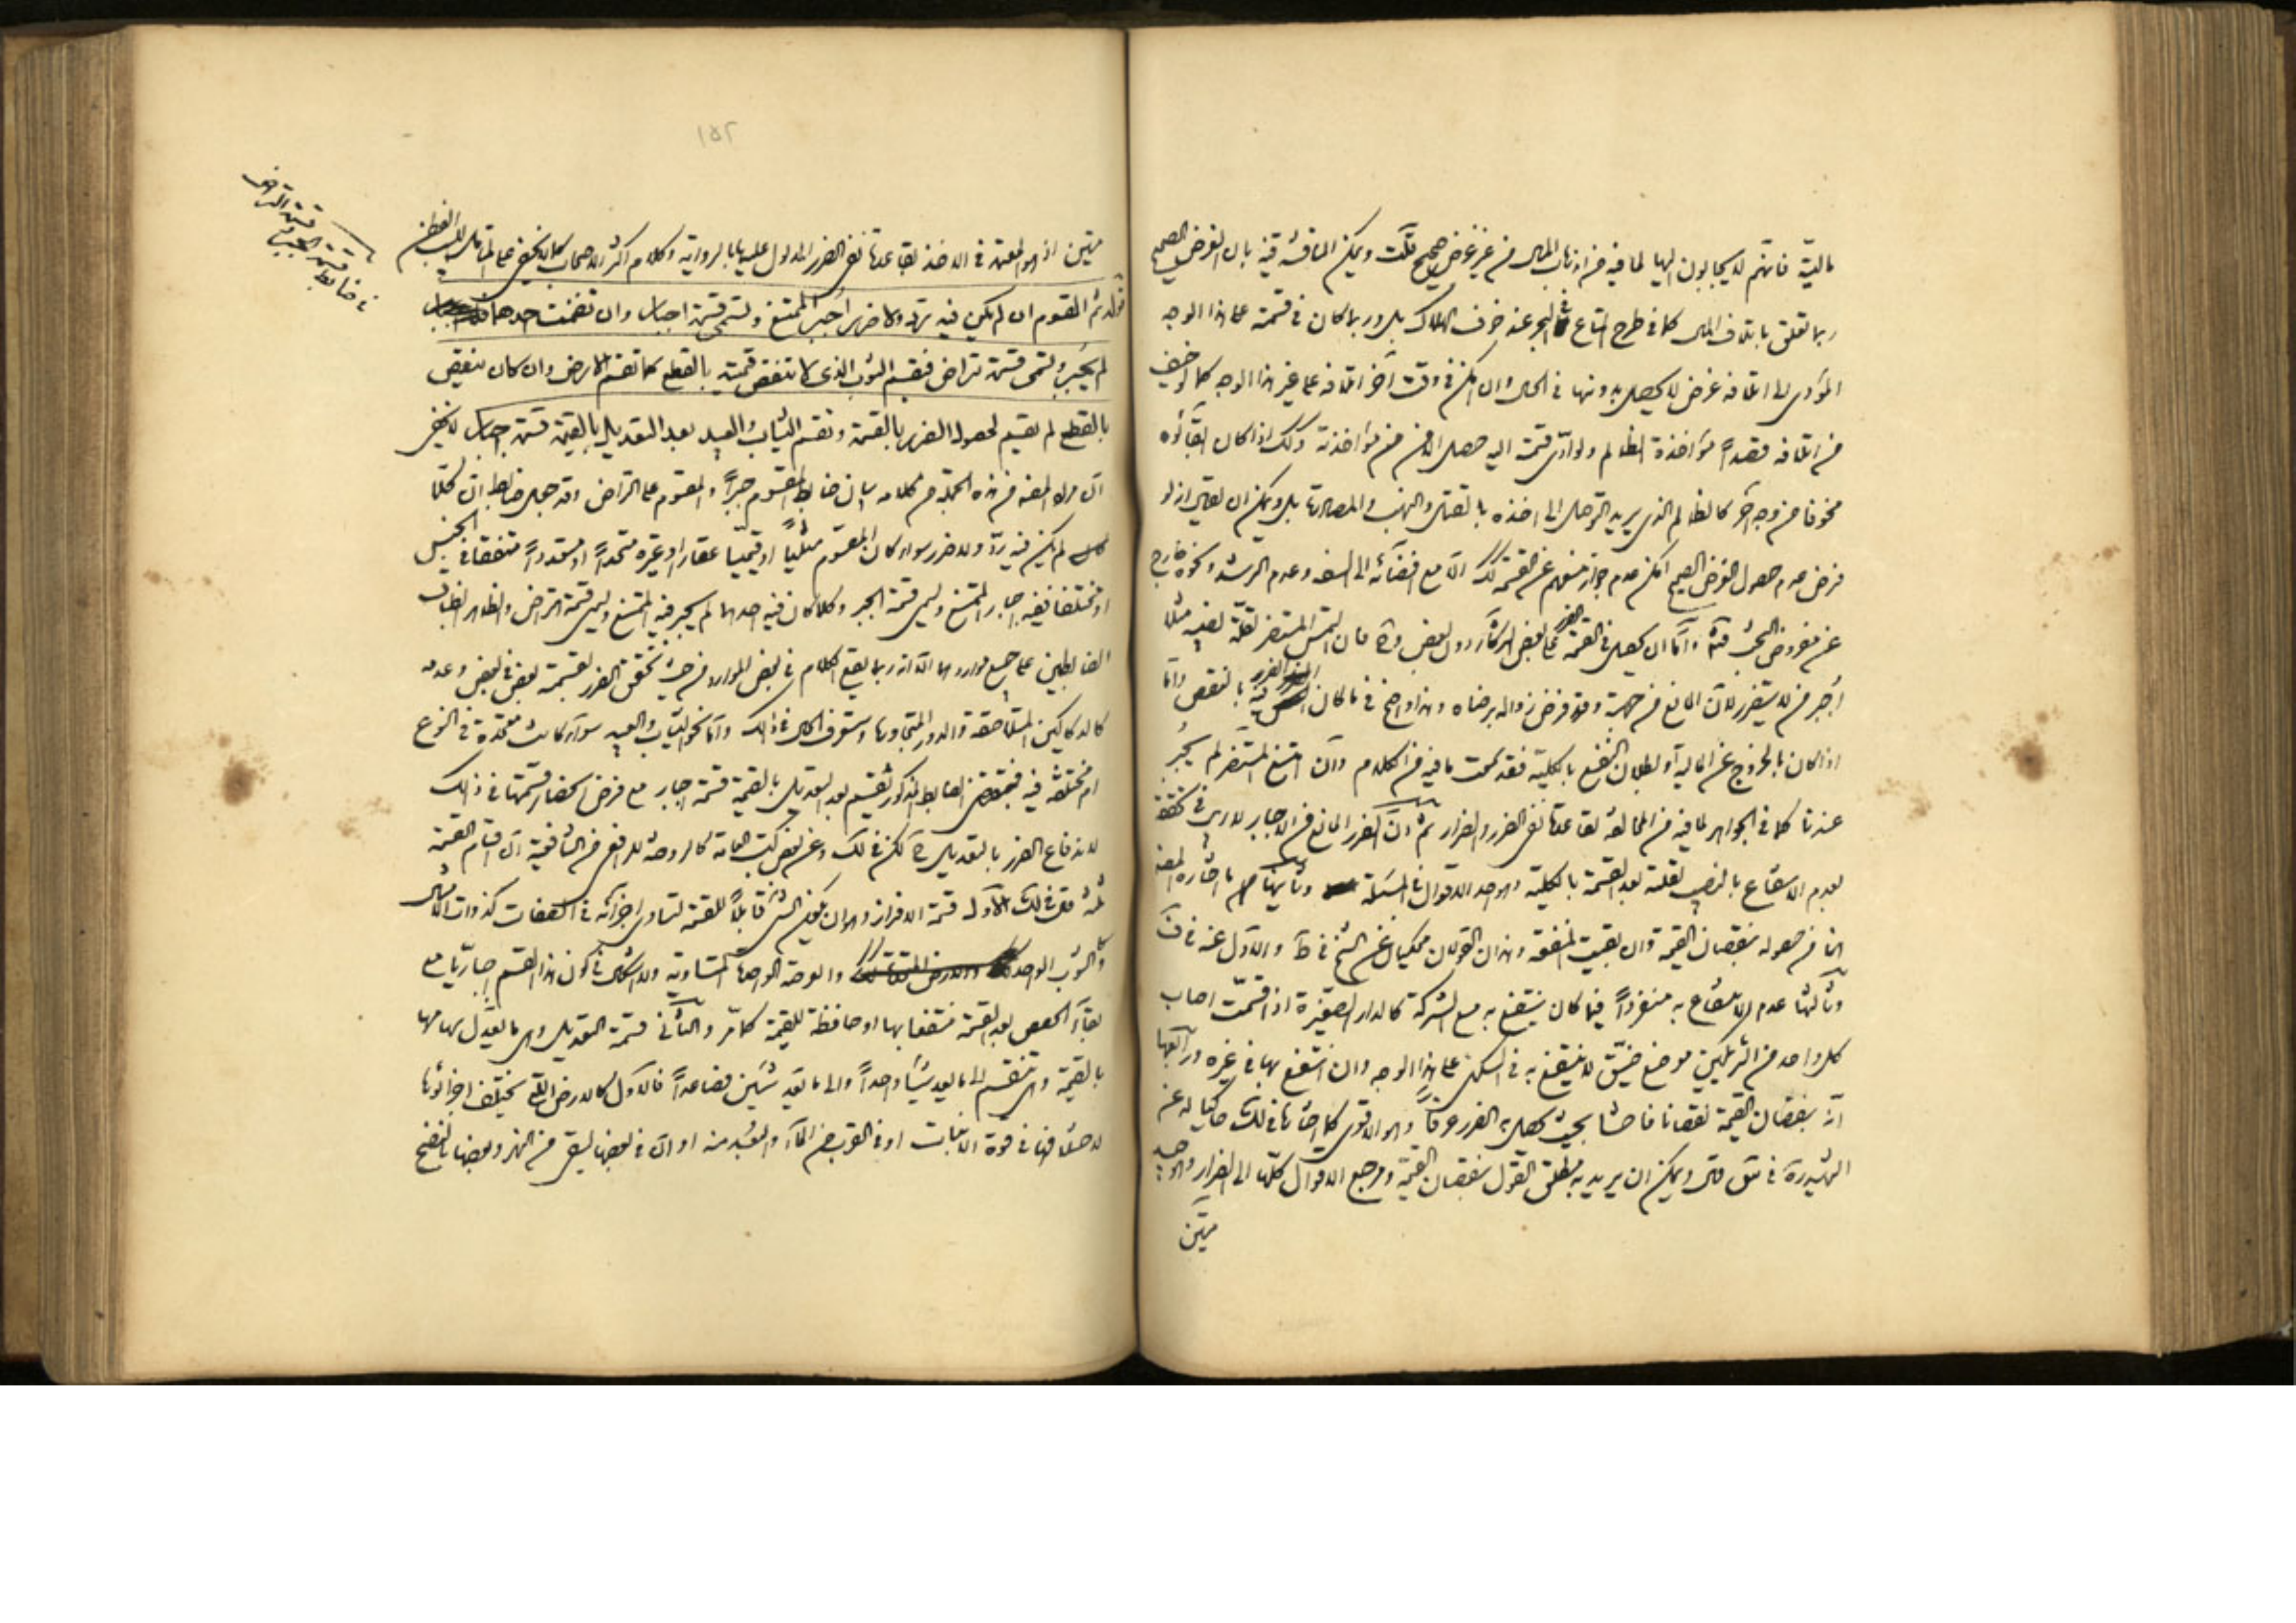 مالية فانهم لا يجابون اليها لما فيه من اذهاب المال من غير غرض صحيح قلت ويمكن المناقشة فيه بان الغرض الصحيح
ربما تعلق باتلاف المال كما في طرح المتاع في البحر عند خوف الهلاك بل وربما كان في قسمته على هذا الوجه
المؤدى الى اتلافه غرض لا يحصل بدونها في الحال وان امكن في وقت آخر اتلافه على غير هذا الوجه كما لو خيف
من اتلافه قصداً مؤاخذة الظالم ولو ادّى قسمته اليه حصل الامن من مؤاخذته وكذا اذا كان ابقاؤه
مخوفا من وجه آخر كالظالم الذي يريد التوصل الى اخذه بالقتل والنهب والمصادرة بل ويمكن ان يقال انه لو
فرض عدم حصول الغرض الصحيح امكن عدم جواز منعهم عن القسمة كذلك الا مع افضائه الى السفه وعدم الرشد ونحوه خارج
عن مفروض البحث فتأمل واما ان يحصل في القسمة الضرر على بعض الشركاء دون بعض وح فان التمس المستضر لقلة نصيبه مثلا
اُجبر من لا يتضرر لان المانع من جهته وقد فرض زواله برضاه وهذا واضح في ما كان الضرر فيه بالنقص واما
اذا كان بالخروج عن المالية او بطلان النفع بالكلية فقد سمعت ما فيه من الكلام وان امتنع المستضر لم يُجبر
عندنا كما في الجواهر لما فيه من المخالفة لقاعدة نفى الضرر والضرار ثم ان الضرر المانع من الاجبار لا ريب في تحققه
بعدم الانتفاع بالنصيب لقلته بعد القسمة بالكلية وهو احد الاقوال في المسئلة وثانيها ما اختاره المصنف
هنا من حصوله بنقصان القيمة وان بقيت المنفعة وهذان القولان محكيان عن الشيخ في ط والاول عنه في ف
وثالثها عدم الانتفاع به منفرداً فيما كان ينتفع به مع الشركة كالدار الصغيرة اذا قسمت اصاب
كل واحد من الشريكين موضع ضيّق لا ينتفع به في السكنى على هذا الوجه وان انتفع بها في غيره ورابعها
انه بنقصان القيمة نقصانا فاحشا بحيث يحصل به الضرر عرفاً وهو الاقوى كما اختاره في لك حاكيا له عن
الشهيد ره في عق قال ويمكن ان يريد به مطلق القول بنقصان القيمة ومرجع الاقوال كلها الى الضرار والوجه
متين
١٥٢
متين اذ هو المعتمد في الاخذ بقاعدة نفى الضرر المدلول عليها بالرواية وكلام اكثر الاصحاب كما لا يخفى على المتأمل اللبيب الفطن
قوله ثم المقسوم ان لم يكن فيه رد ولا ضرر اجبر الممتنع وتسمى قسمة اجبار وان تضمنت احدهما
لم يجبر وتسمى قسمة تراض فيقسم الثوب الذى لا تنقص قيمته بالقطع كما تقسم الارض وان كان ينقص
بالقطع لم يقسم لحصول الضرر بالقسمة وتقسم الثياب والعبيد بعد التعديل بالقيمة قسمة اجبار لا يخفى
ان مراد المصنف من هذه الجملة من كلامه بيان ضابط المقسوم جبراً والمقسوم على التراضي وقد جعل ضابط ان كلما
لم يكن فيه ردّ ولا ضرر سواء كان المقسوم مثلياً او قيمياً عقارا او غيره متحداً او متعدداً متفقا في الجنس
او مختلفا ففيه اجبار الممتنع وليسمى قسمة الجبر وكلما كان فيه احدهما لم يجبر فيه الممتنع وليسمى قسمة التراضى والظاهر انطباق
الضابطين على جميع مواردهما الا انه ربما يقع الكلام في بعض الموارد من حيث تحقق الضرر بقسمة بعض في بعض وعدمه
كالدكاكين المتلاصقة والدور المتجاورة وستعرف الحال في ذلك واما نحو الثياب والعبيد سواء كانت متحدة في النوع
ام مختلفة فيه فبمقتضى الضابط المذكور تقسيم بعد التعديل بالقيمة قسمة اجبار مع فرض انحصار قسمتها في ذلك
لاندفاع الضرر بالتعديل ح لكن في لك وعن بعض كتب العامة كالروضة للرافعي من الشافعية ان اقسام القسمة
ثلثة قال في لك الاول قسمة الافراز وهو ان يكون الشئ قابلاً للقسمة لتساوى اجزائه في الصفات كذوات الامثال
وكالثوب الواحد والعرصة الواحدة المتساوية ولا اشكال في كون هذا القسم اجبارياً مع
بقاء الحصص بعد القسمة منتفعا بها او حافظة للقيمة كما مر والثاني قسمة التعديل وهى ما يعدّل سهامها
بالقيمة وهى تنقسم الى ما يعد شيئا واحداً والى ما يعد شيئين فصاعداً فالاول كالارض التي تختلف اجزائها
لاختلافها في قوة الانبات او في القرب من الماء والبعد منه او ان في بعضها يسقى من النهر وبعضها بالنضح
في ضابط
قسمة الجبر
وقسمة التراضى